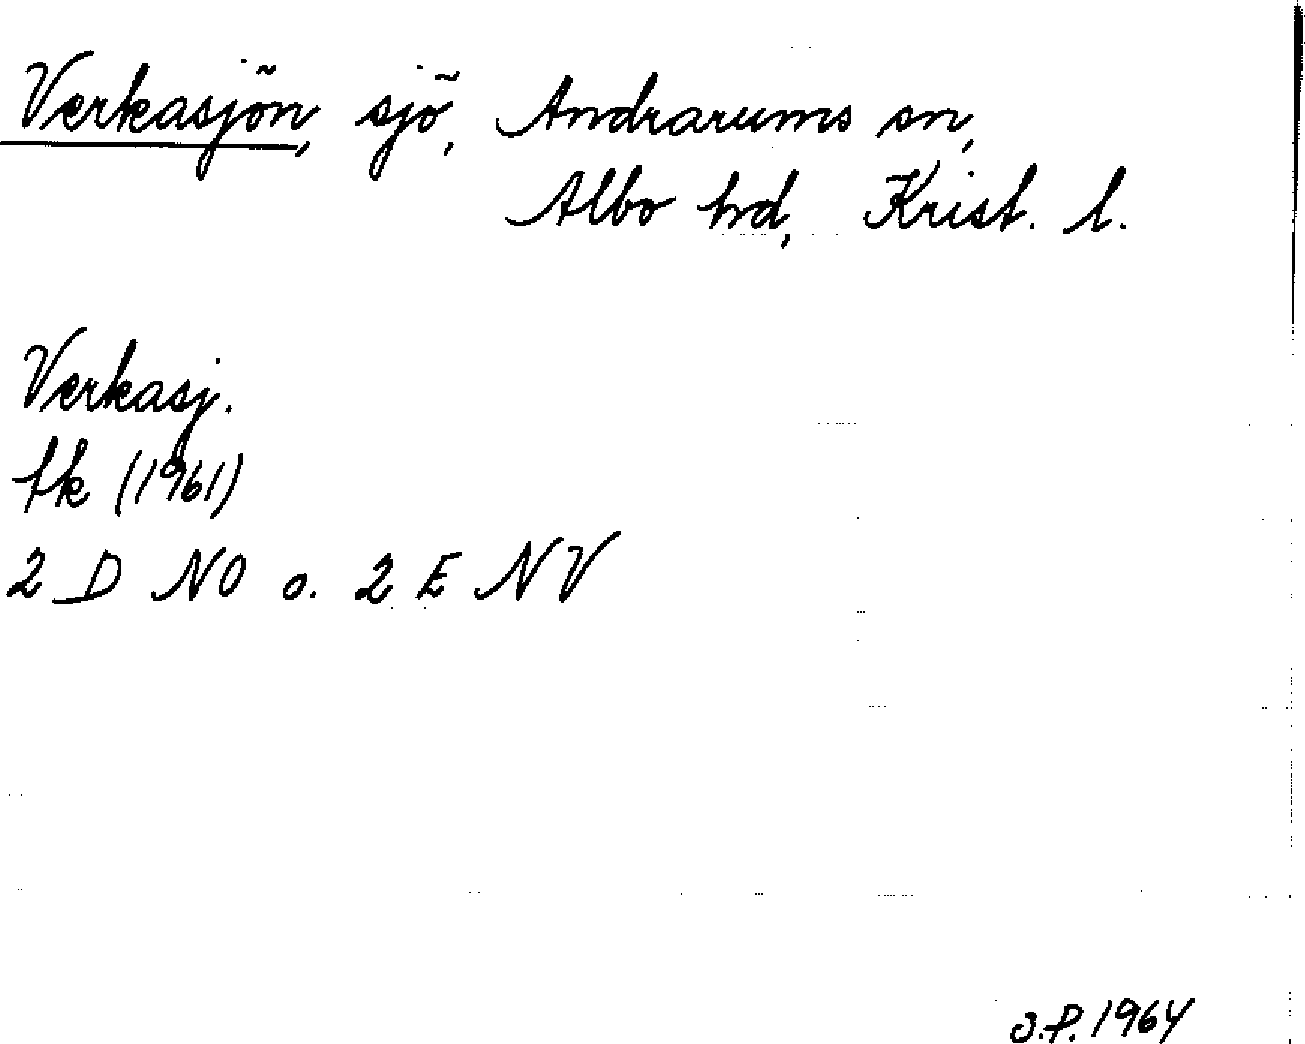 Verkasjön, sjö, Andrarums sn,
Albo hd, Krist. l.
Verkasj.
fk (1961)
2 D NO o. 2 E NV
O.P. 1964